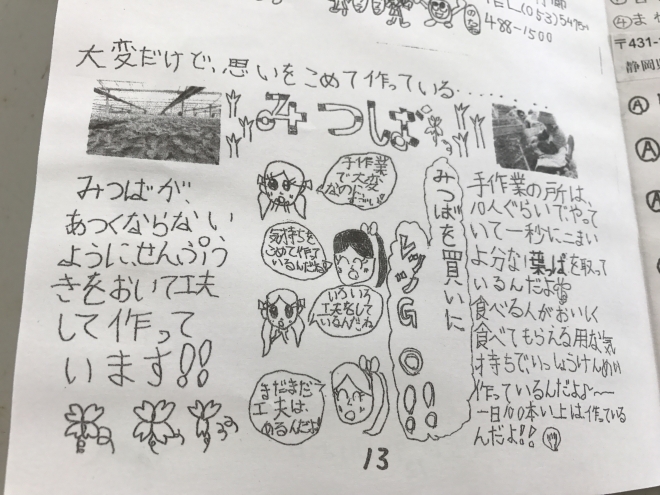 (053)545
488-1500
大変だけど、思いをこめて作っている・・・・・・・・
みつば
手作業の所は、
10人ぐらいでやって
いて一秒に二まい
よ分な葉っぱを取って
いるんだよ
食べる人がおいしく
食べてもらえる用な気
持ちで、いっしょうけんめい
作っているんだよ♪〜〜
一日100本い上は作っている
んだよ!!
みつばを買いに
レッツGO!!
手作業
で大変
なのに
すごい
気持ちを
こめて作って
いるんだね
いろいろ
工夫をして
いるんだね
まだまだ
工夫は、
あるんだよ
みつばが、
あつくならない
ように、せんぷう
きをおいて工夫
して作って
います!!
13
〒431-
静岡
Ⓐ
Ⓐ